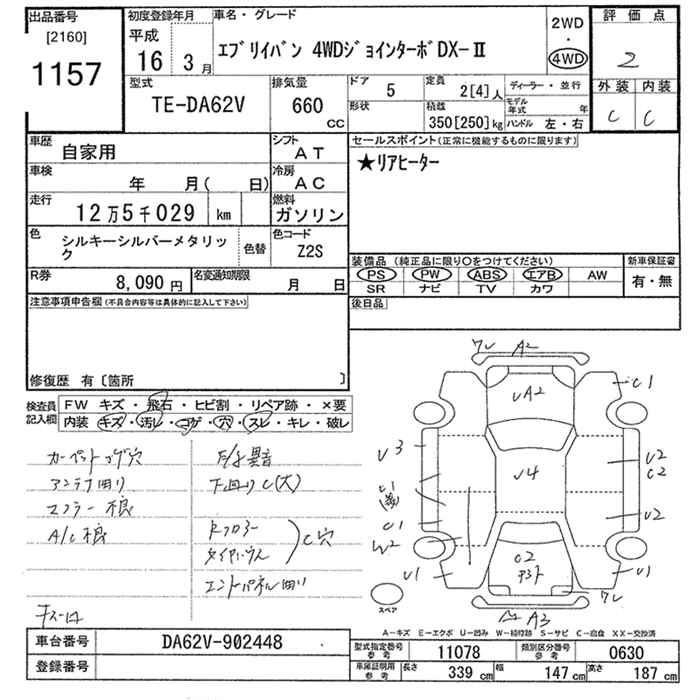 出品番号
[2160]
1157
初度登録年月
平成
16 3月
車名・グレード
エブリイバン 4WDジョインターボDX-Ⅱ
2WD
・
4WD
評価点
2
外装 内装
C C
型式
TE-DA62V
排気量
660
CC
ドア
5
定員
2[4]人
ディーラー・並行
形状
積載
350[250]kg
モデル年式 年
ハンドル 左・右
車歴
自家用
シフト
AT
セールスポイント(正常に機能するものに限ります)
★リアヒーター
車検
年 月( 日)
冷房
AC
走行
12万5千029 km
燃料
ガソリン
色
シルキーシルバーメタリック
色替
色コード
Z2S
装備品(純正品に限り○をつけてください)
新車保証書
PS PW ABS エアB AW
有・無
SR ナビ TV カワ
R券
8,090円
名変通知期限
月 日
後日品
注意事項申告欄(不具合内容等は具体的に記入して下さい)
修復歴 有〔箇所 〕
検査員記入欄
FW キズ・飛石・ヒビ割・リペア跡・×要
内装・キズ・汚レ・コゲ・穴・スレ・キレ・破レ
カーペットコゲ穴
アンテナ曲り
マフラー
A/C
下廻りC(大)
C穴
エンドパネル曲り
ワレ A2
UA2
C1
U3
U4
U2
C2
C1
C1
U2
W2
U1
C2
U1
ワレ
A3
スペア
A-キズ E-エクボ U-凹み W-補修跡 S-サビ C-腐食 XX-交換済
車台番号
DA62V-902448
登録番号
型式指定番号
参考
11078
類別区分番号
参考
0630
車庫証明用
参考
長さ 339 cm 幅 147 cm 高さ 187 cm